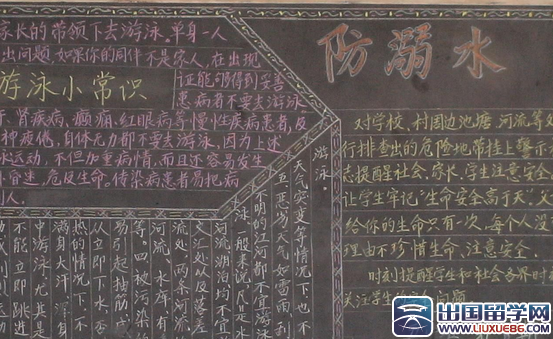 家长的带领下去游泳。单身一人
出问题。如果你的同伴不是家人,在出现
证能够得到妥善
游泳小常识
患病者不要去游泳
肾疾病、癫痫、红眼病等慢性疾病患者,反
神疲倦,自体无力都不要去游泳,因为上述
水运动,不但加重病情,而且还容易发生
急迷,危反生命。传染病患者易把病
人。
防溺水
对学校,村围边池塘,河流等处
行排查出的危险地带挂上警示
志提醒社会、家长、学生注意安全
让学生牢记“生命安全高于天,父
给你的生命只有一次,每个人没
理由不珍惜生命、注意安全。
时刻提醒学生和社会各界时
关注学生的 人问题
游泳。
天气突变等情况下也不
五、恶劣天气如雷雨、刮
不明的江河都不宜游泳
河流湖泊均不宜
泳。一般来说,凡是水
交汇处以及落差
流处,两条河流
河流、水库、有
等。四被污染的
易引起抽筋、感
从立即下水,否
热的情况下,不
满身大汗,浑身
中游泳尤其是
不能立即跳进
出国留学网
www.liuxue86.com